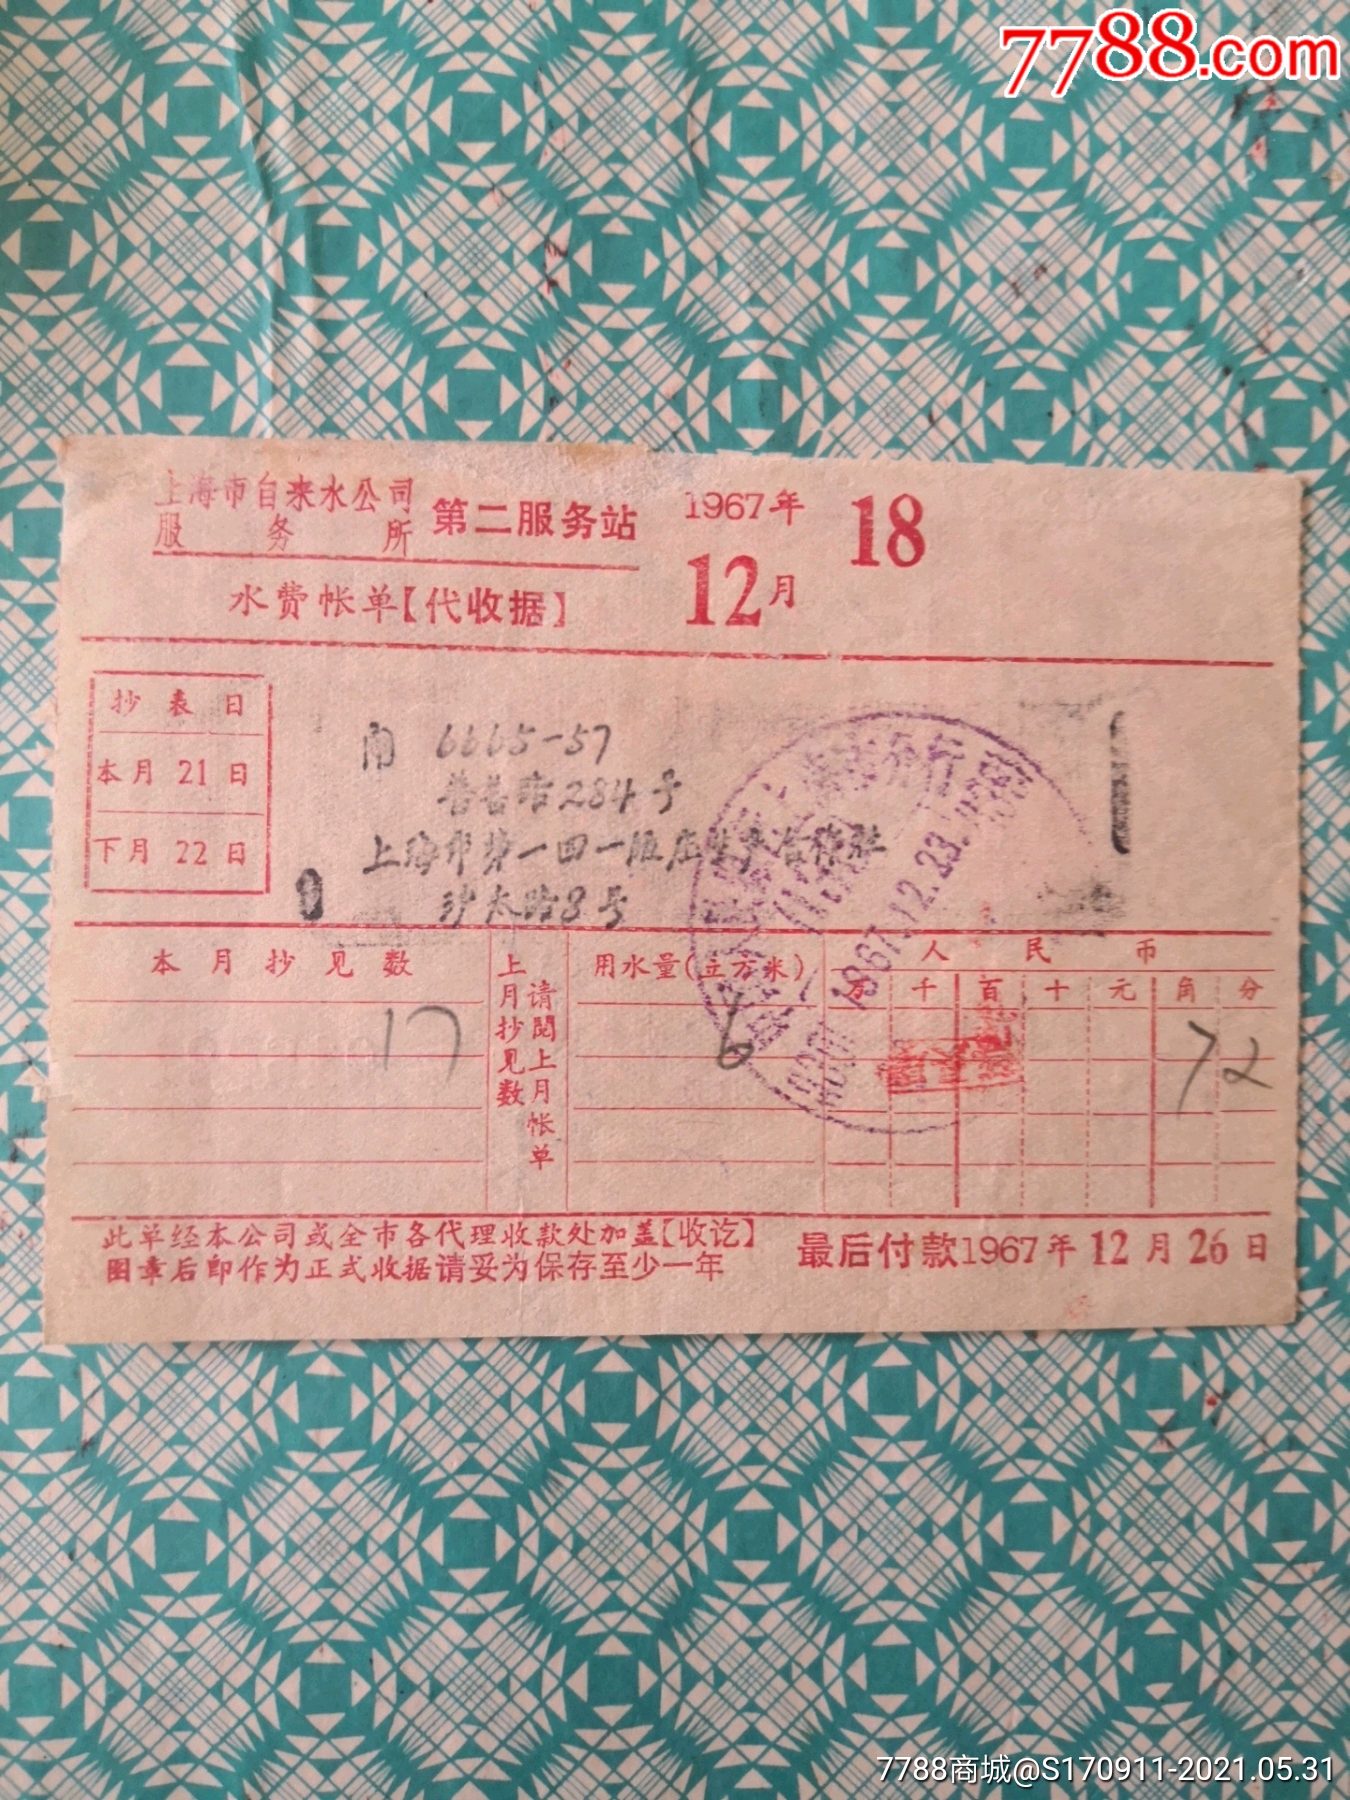 7788.com
上海市自来水公司
服务所
第二服务站
1967年
12月
18
水费帐单【代收据】
抄表日
本月 21 日
下月 22 日
南 6665-57
普善路284号
沙太路8号
本月抄见数
上月抄见数
请阅上月帐单
用水量(立方米)
人民币
万 千 百 十 元 角 分
17
6
72
1967.12.23.
此单经本公司或全市各代理收款处加盖【收讫】
图章后即作为正式收据请妥为保存至少一年
最后付款1967年 12 月 26 日
7788商城@S170911-2021.05.31